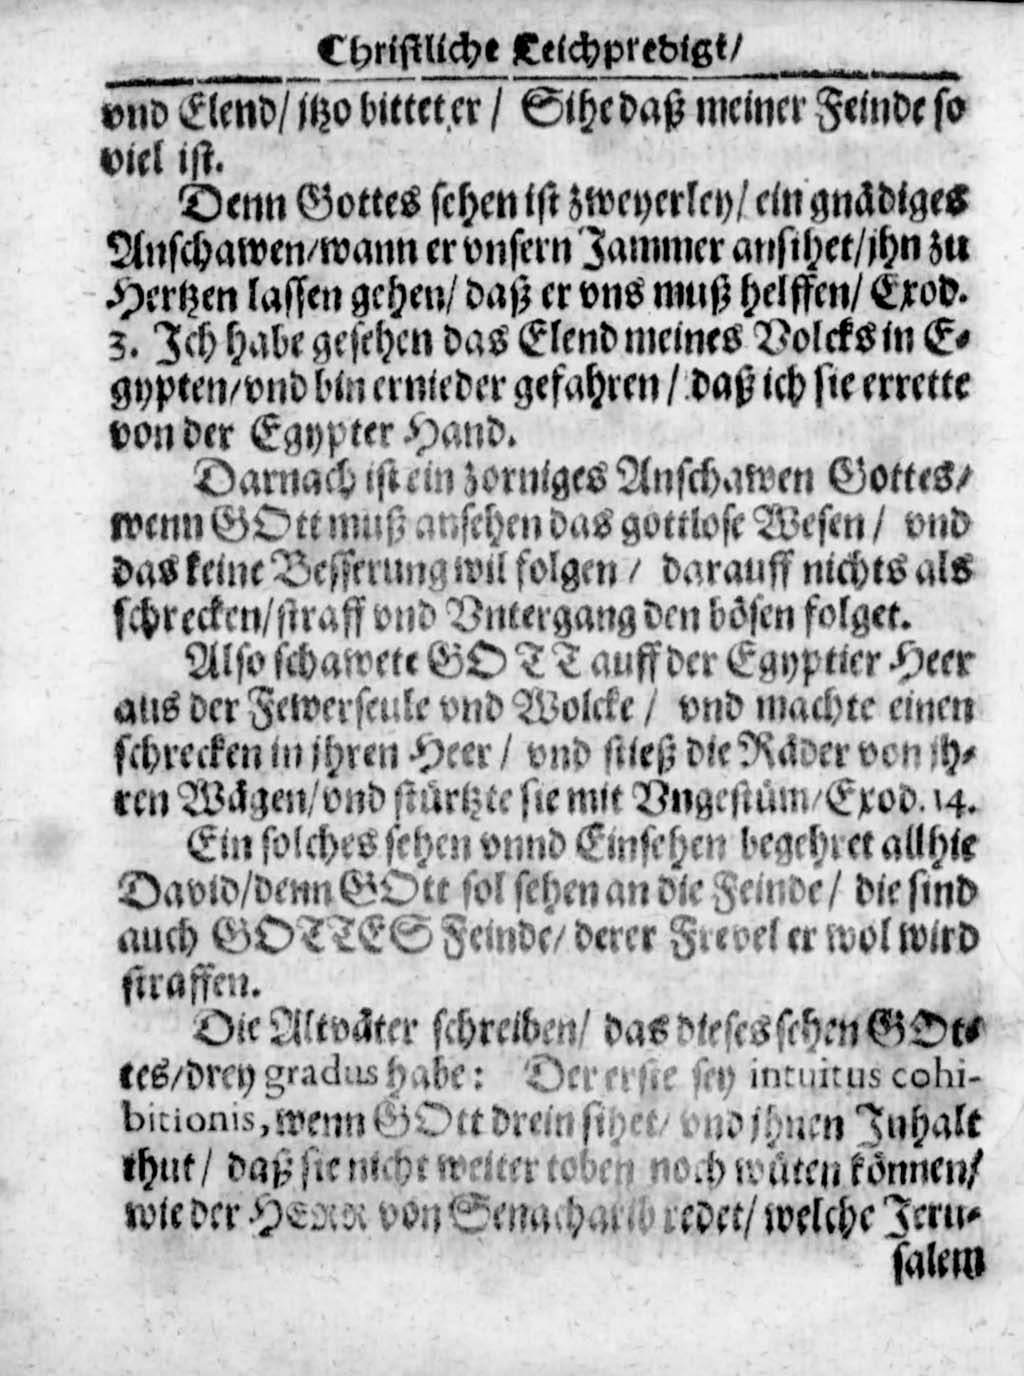 Christliche Leichpredigt/
vnd Elend/ jtzo bittet er / Sihe daß meiner Feinde so
viel ist.
Denn Gottes sehen ist zweyerley/ ein gnädiges
Anschawen/wann er vnsern Jammer ansihet/jhn zu
Hertzen lassen gehen/ daß er vns muß helffen/ Exod.
3. Ich habe gesehen das Elend meines Volcks in E-
gypten/vnd bin ernieder gefahren / daß ich sie errette
von der Egypter Hand.
Darnach ist ein zorniges Anschawen Gottes/
wenn GOtt muß ansehen das gottlose Wesen / vnd
das keine Besserung wil folgen / darauff nichts als
schrecken/straff vnd Vntergang den bösen folget.
Also schawete GOTT auff der Egyptier Heer
aus der Fewerseule vnd Wolcke / vnd machte einen
schrecken in jhren Heer / vnd stieß die Räder von jh-
ren Wägen/vnd stürtzte sie mit Vngestüm/Exod. 14.
Ein solches sehen vnnd Einsehen begehret allhie
David/denn GOtt sol sehen an die Feinde/ die sind
auch GOTTES Feinde/ derer Frevel er wol wird
straffen.
Die Altväter schreiben/ das dieses sehen GOt-
tes/drey gradus habe: Der erste sey intuitus cohi-
bitionis, wenn GOtt drein sihet/ vnd jhnen Inhalt
thut/ daß sie nicht weiter toben noch wüten können/
wie der HERR von Senacharib redet/ welche Jeru-
salem